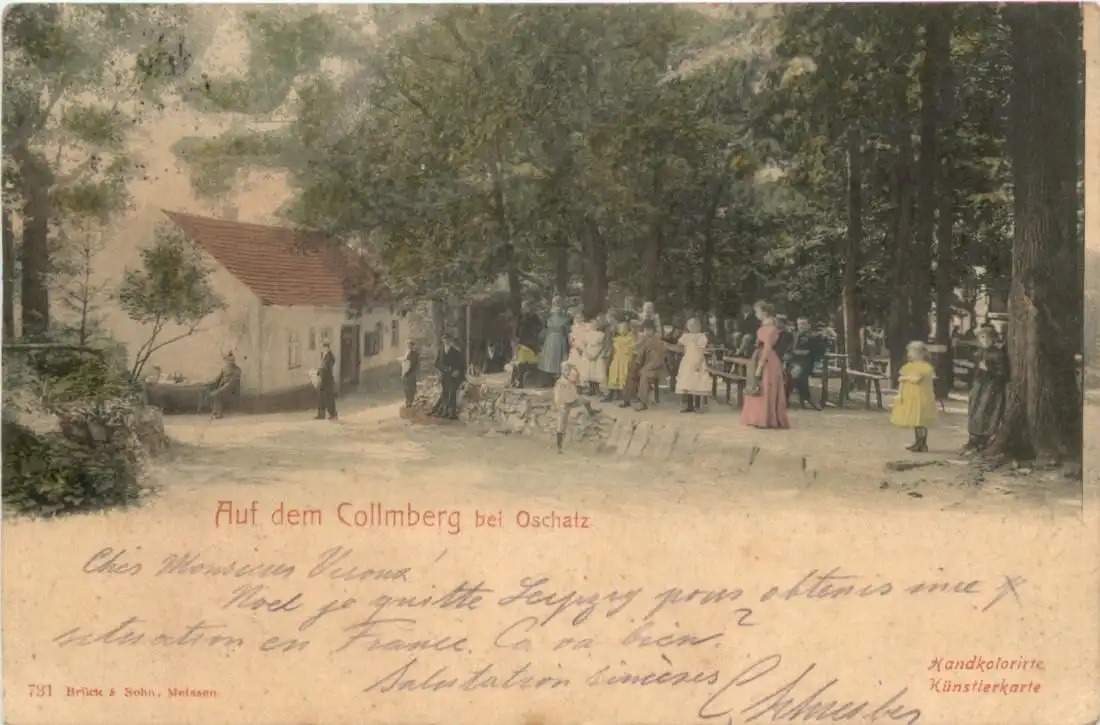 Auf dem Collmberg bei Oschatz
Cher Monsieur
Noel je quitte Leipzig pour obtenir une
situation en France. Ca va bien?
Salutation sincères
C. Schreiber
731 Brück & Sohn, Meissen
Handkolorirte
Künstlerkarte